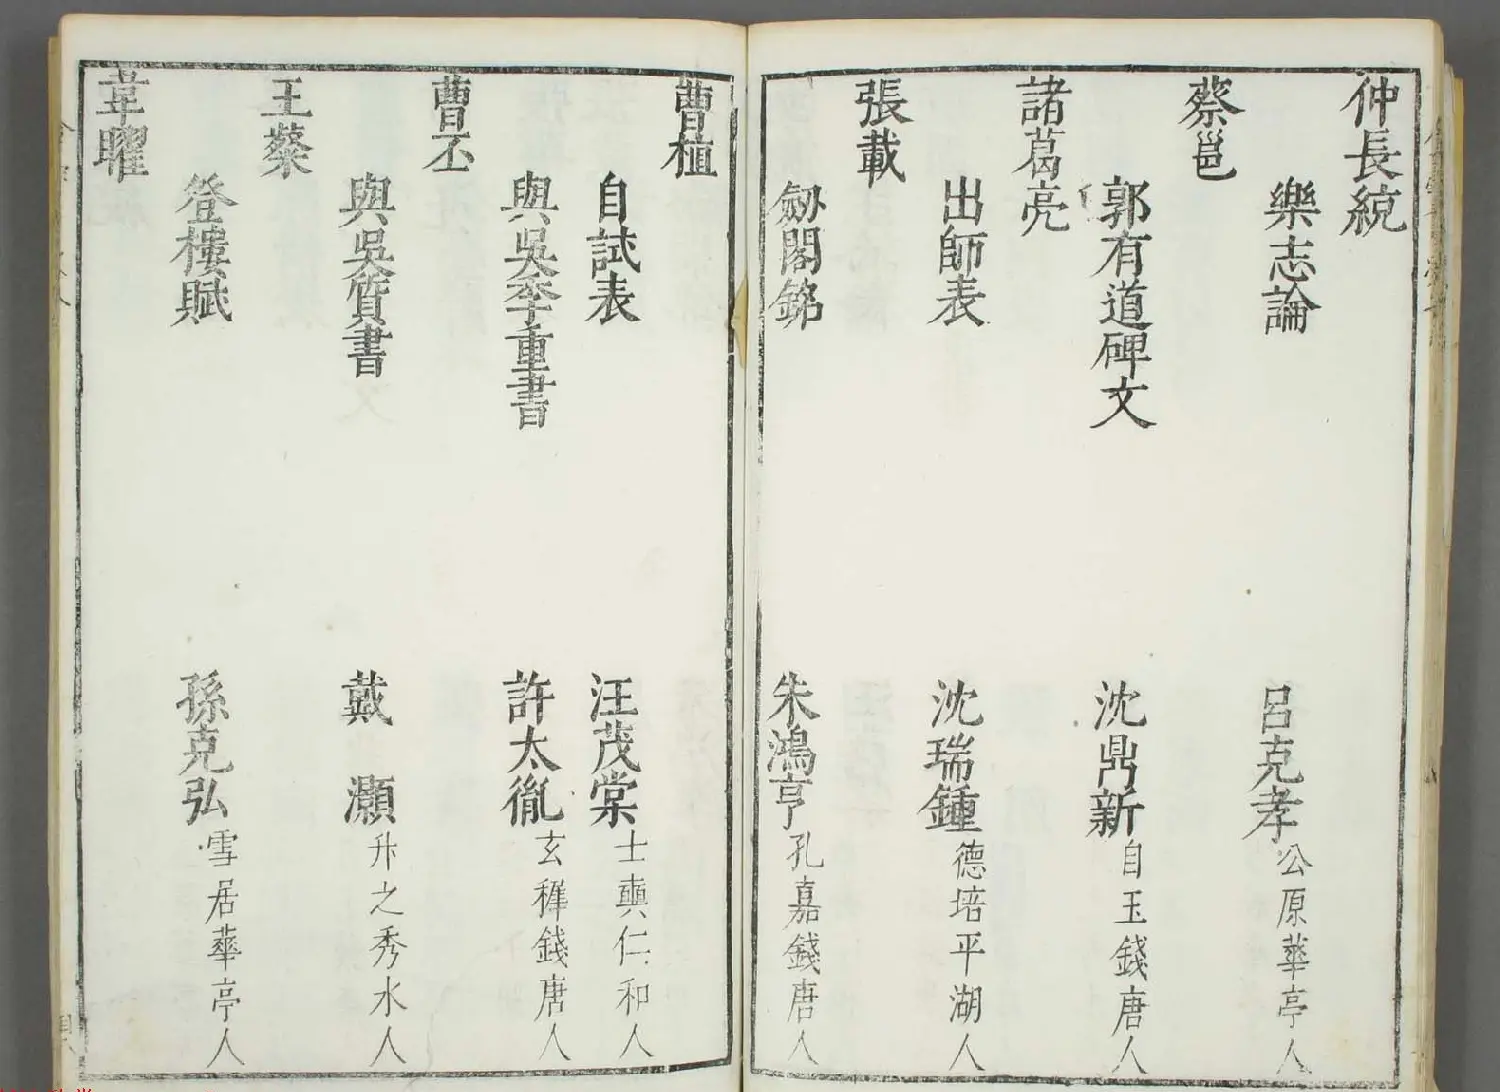 仲長統
樂志論 呂克孝 公原華亭人
蔡邕
郭有道碑文 沈鼎新 自玉錢唐人
諸葛亮
出師表 沈瑞鍾 德培平湖人
張載
劒閣銘 朱鴻亨 孔嘉錢唐人
曹植
自試表 汪茂棠 士輿仁和人
與吳季重書 許太胤 玄穉錢唐人
曹丕
與吳質書 戴灝 升之秀水人
王粲
登樓賦 孫克弘 雪居華亭人
韋曜